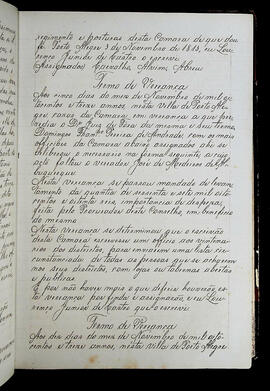 regimento e posturas desta Camara de que dou
fé. Porto Alegre 3 de Novembro de 1813, eu Lou-
renço Junior de Castro o escrevi.
Assignados Carvalho, Abreu
Termo de Vereança
Aos cinco dias do mez de Novembro de mil oi-
tocentos e treze annos, nesta villa de Porto Ale-
gre casas da Camara, em vereança a que pre-
sidio o Dor Juiz de Fora da mesma e seu termo
Domingos Franco Pereira de Andrade com os mais
officiaes da Camara abaixo assignados ahi se
deliberou o necessario na forma seguinte a cuja
acção faltou o vereador José de Medeiros Al-
buquerque
Nesta vereança se passou mandado de levan-
tamento da quantia de sessenta e sete mil oi-
tocentos e oitenta reis, importancia de despezas
feitas pelo Procurador deste Conselho, em beneficio
do mesmo
Nesta vereança se determinou que o escrivão
desta Camara escrevesse um officio aos vintenarios
dos districtos, para enviarem uma lista cir-
cunstanciada de todas as pessoas que se acharem
nos seus districtos, com lojas ou tabernas abertas
e publicas
E por não haver mais o que deferir houverão es-
ta vereança por finda e assignarão, e eu Lou-
renço Junior de Castro que escrevi.
Termo de Vereança
Aos dez dias do mez de Novembro de mil oito-
centos e treze annos, nesta villa de Porto Alegre